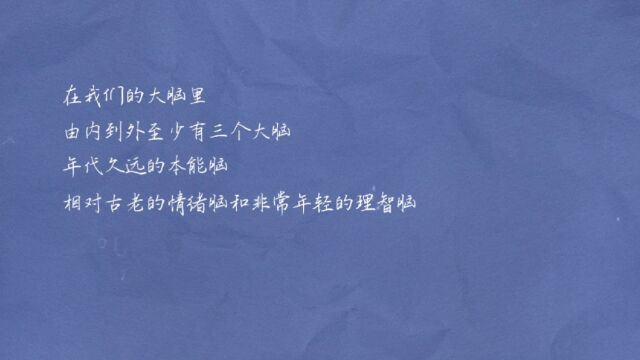 在我们的大脑里
由内到外至少有三个大脑
年代久远的本能脑
相对古老的情绪脑和非常年轻的理智脑